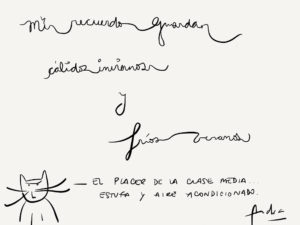 Mi recuerdo guarda
cálidos inviernos
y
fríos veranos
— EL PLACER DE LA CLASE MEDIA...
ESTUFA Y AIRE ACONDICIONADO.